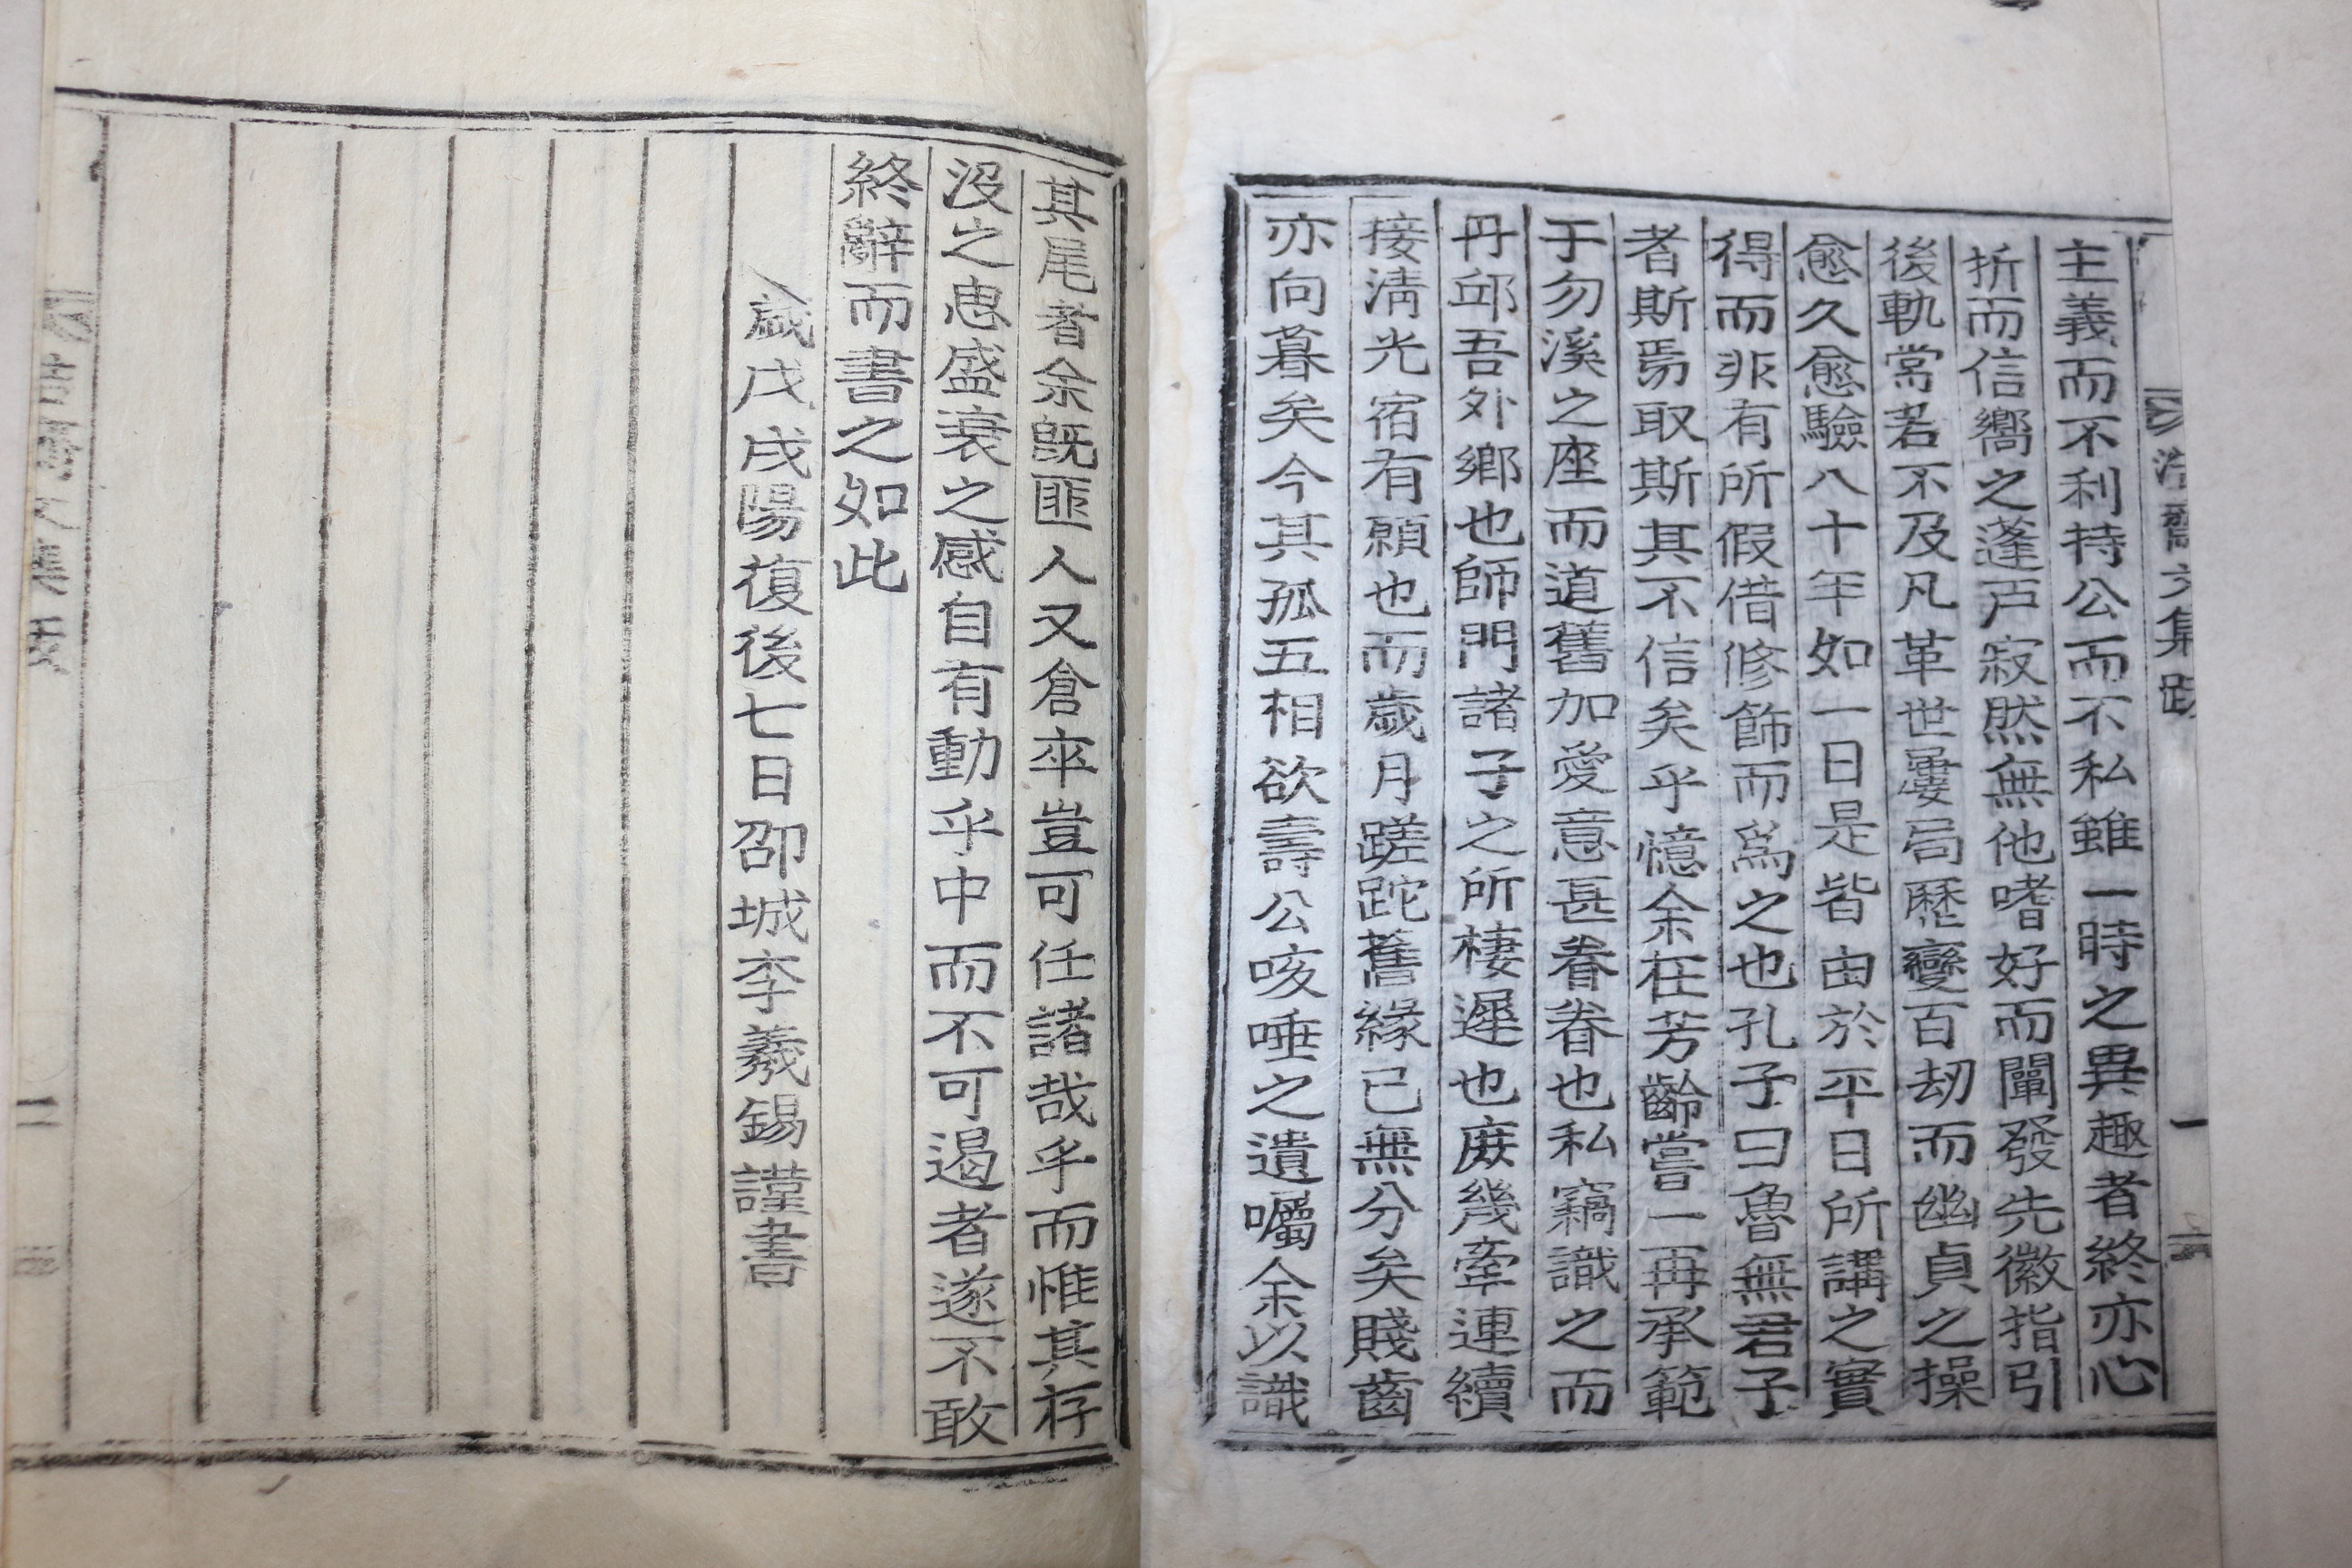 浩齋文集跋
一
主義而不利持公而不私雖一時之異趣者終亦心
折而信嚮之蓬戸寂然無他嗜好而闡發先徽指引
後軌常若不及凡革世屢局歷變百劫而幽貞之操
愈久愈驗八十年如一日是皆由於平日所講之實
得而非有所假借修飾而爲之也孔子曰魯無君子
者斯焉取斯其不信矣乎憶余在芳齡嘗一再承範
于勿溪之座而道舊加愛意甚眷眷也私竊識之而
丹邱吾外鄉也師門諸子之所棲遲也庶幾牽連續
接淸光宿有願也而歲月蹉跎舊緣已無分矣賤齒
亦向暮矣今其孤五相欲壽公咳唾之遺囑余以識
其尾者余旣匪人又倉卒豈可任諸哉乎而惟其存
沒之悳盛衰之感自有動乎中而不可遏者遂不敢
終辭而書之如此
歲戊戌陽復後七日邵城李羲錫謹書
二